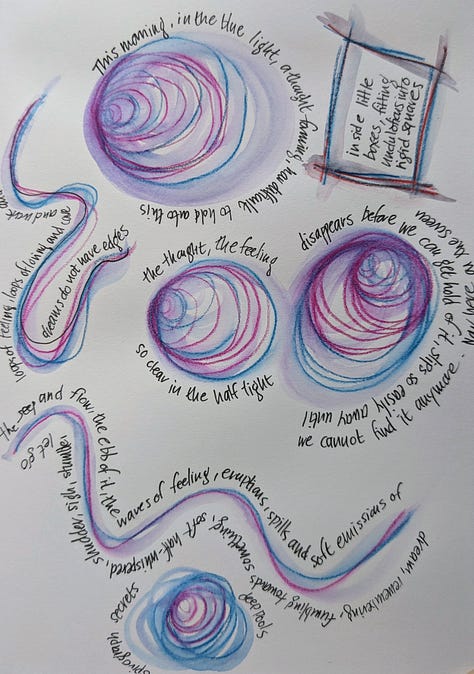 This morning, in the blue light, a thought forming, how difficult to hold onto this
inside little
boxes, fitting
into
rigid squares
and work and
loops of feeling, loops of loving and care
dreams do not have edges
the thought, the feeling
so clear in the half light
disappears before we can get hold of it, slips so easily away until
we cannot find it anymore.
the seep and flow, the ebb of it, the waves of feeling, eruptions, spills and soft emissions of
dream, remembering,
fumbling towards something, soft half-whispered, shudder, sigh, stumble, let go
deep pools
spirograph secrets